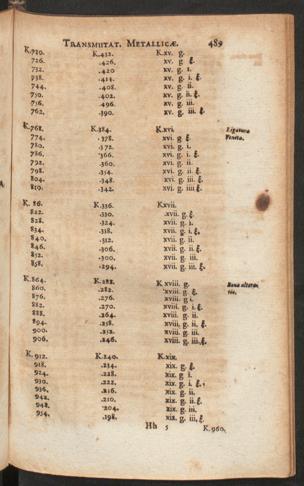 TRANSMUTAT. METALLICÆ. 489
K.720. K.432. K.xv. g.
726. .426. xv. g ξ.
732. .420 xv. g i.
738. .414. xv. g. i. ξ
744. .408. xv. g. ii.
750. .402. xv. g. ii. ξ.
756. .496. xv. g. iii.
762. .390. xv. g. iii. ξ
K.768. K.384. K.xvi. Ligatura
774. .378. xvi. g ξ. Veneta.
780. .372. xvi. g. i.
786. .366 xvi. g. i. ξ
792. .360. xvi. g. ii.
798. .354. xvi. g. ii. ξ
804. .348. xvi. g. iii. ξ
810. .342. xvi. g. iiii ξ
K. 86. K.336. K.xvii.
822. .330. .xvii. g. ξ
828. .324. xvii. g. i.
834. .318. xvii. g. i. ξ
840. .312. xvii. g. ii.
846. .306. xvii. g. ii. ξ
852. .300. xvii. g. iii.
858. .294. xvii. g. iii. ξ.
K.864. K.288. K xviii. g. Bona altera-
860. .282. xviii. g. ξ tio.
876. .276. xviii. g. i
882. .270. xviii. g. i. ξ
888. .264. xviii. g. ii.
894. .258. xviii. g. ii. ξ.
900. .252. xviii. g. iii.
906. .246. xviii. g. iii. ξ.
K. 912. K.240. K.xix.
918. .234. xix. g. ξ
924. .228. xix. g i.
930. .222. xix. g. i. ξ.
936. .216. xix. g. ii.
942. .210. xix. g. ii. ξ
948. .204. xix. g. iii.
954. .198. xix. g. iii. ξ
Hh 5 K.960.